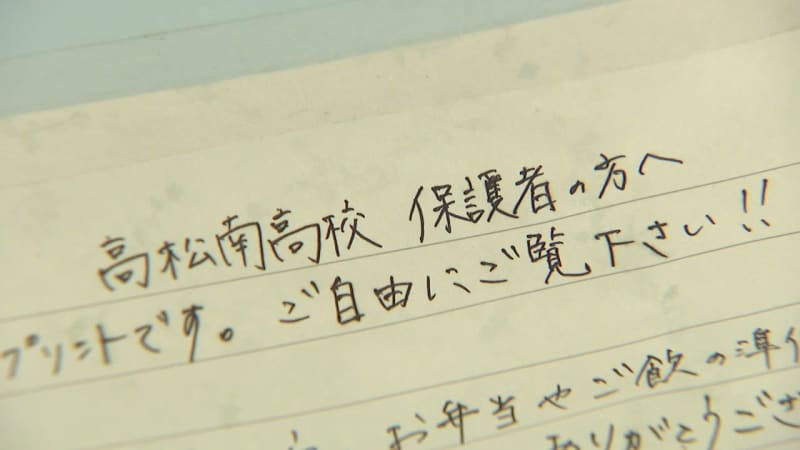 高松南高校 保護者の方へ
プリントです。ご自由にご覧下さい!!
お弁当やご飲の準備
ありがとうござ